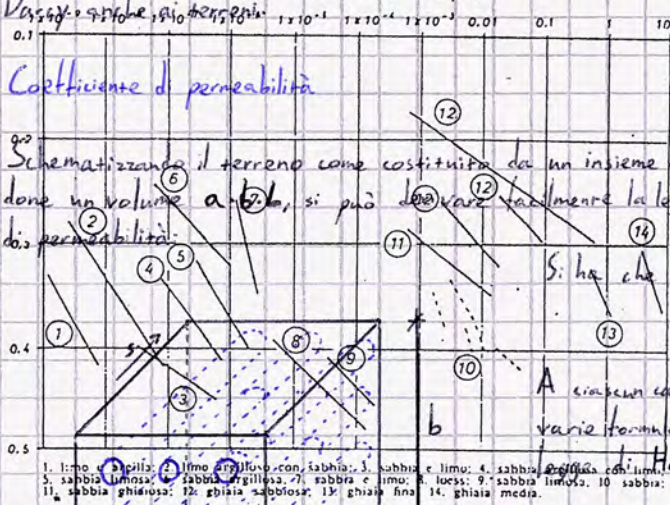 Darcy anche ai terreni.
1x10⁻⁵ 1x10⁻⁴ 1x10⁻³ 0.01 0.1 1 10
0.1
Coefficiente di permeabilità
12
0.2
Schematizzando il terreno come costituito da un insieme
6 12
done un volume a·b·b, si può derivare facilmente la
2 11 14
di permeabilità:
0.3
4 5
Si ha che
1 13
0.4 s 8 9
3 10
A ciascun
b varie formul
0.5
1. limo e argilla; 2. limo argilloso con sabbia; 3. sabbia e limo; 4. sabbia argillosa con limo;
5. sabbia limosa; 6. sabbia argillosa; 7. sabbia e limo; 8. loess; 9. sabbia limosa; 10 sabbia;
11. sabbia ghiaiosa; 12. ghiaia sabbiosa; 13. ghiaia fina; 14. ghiaia media.